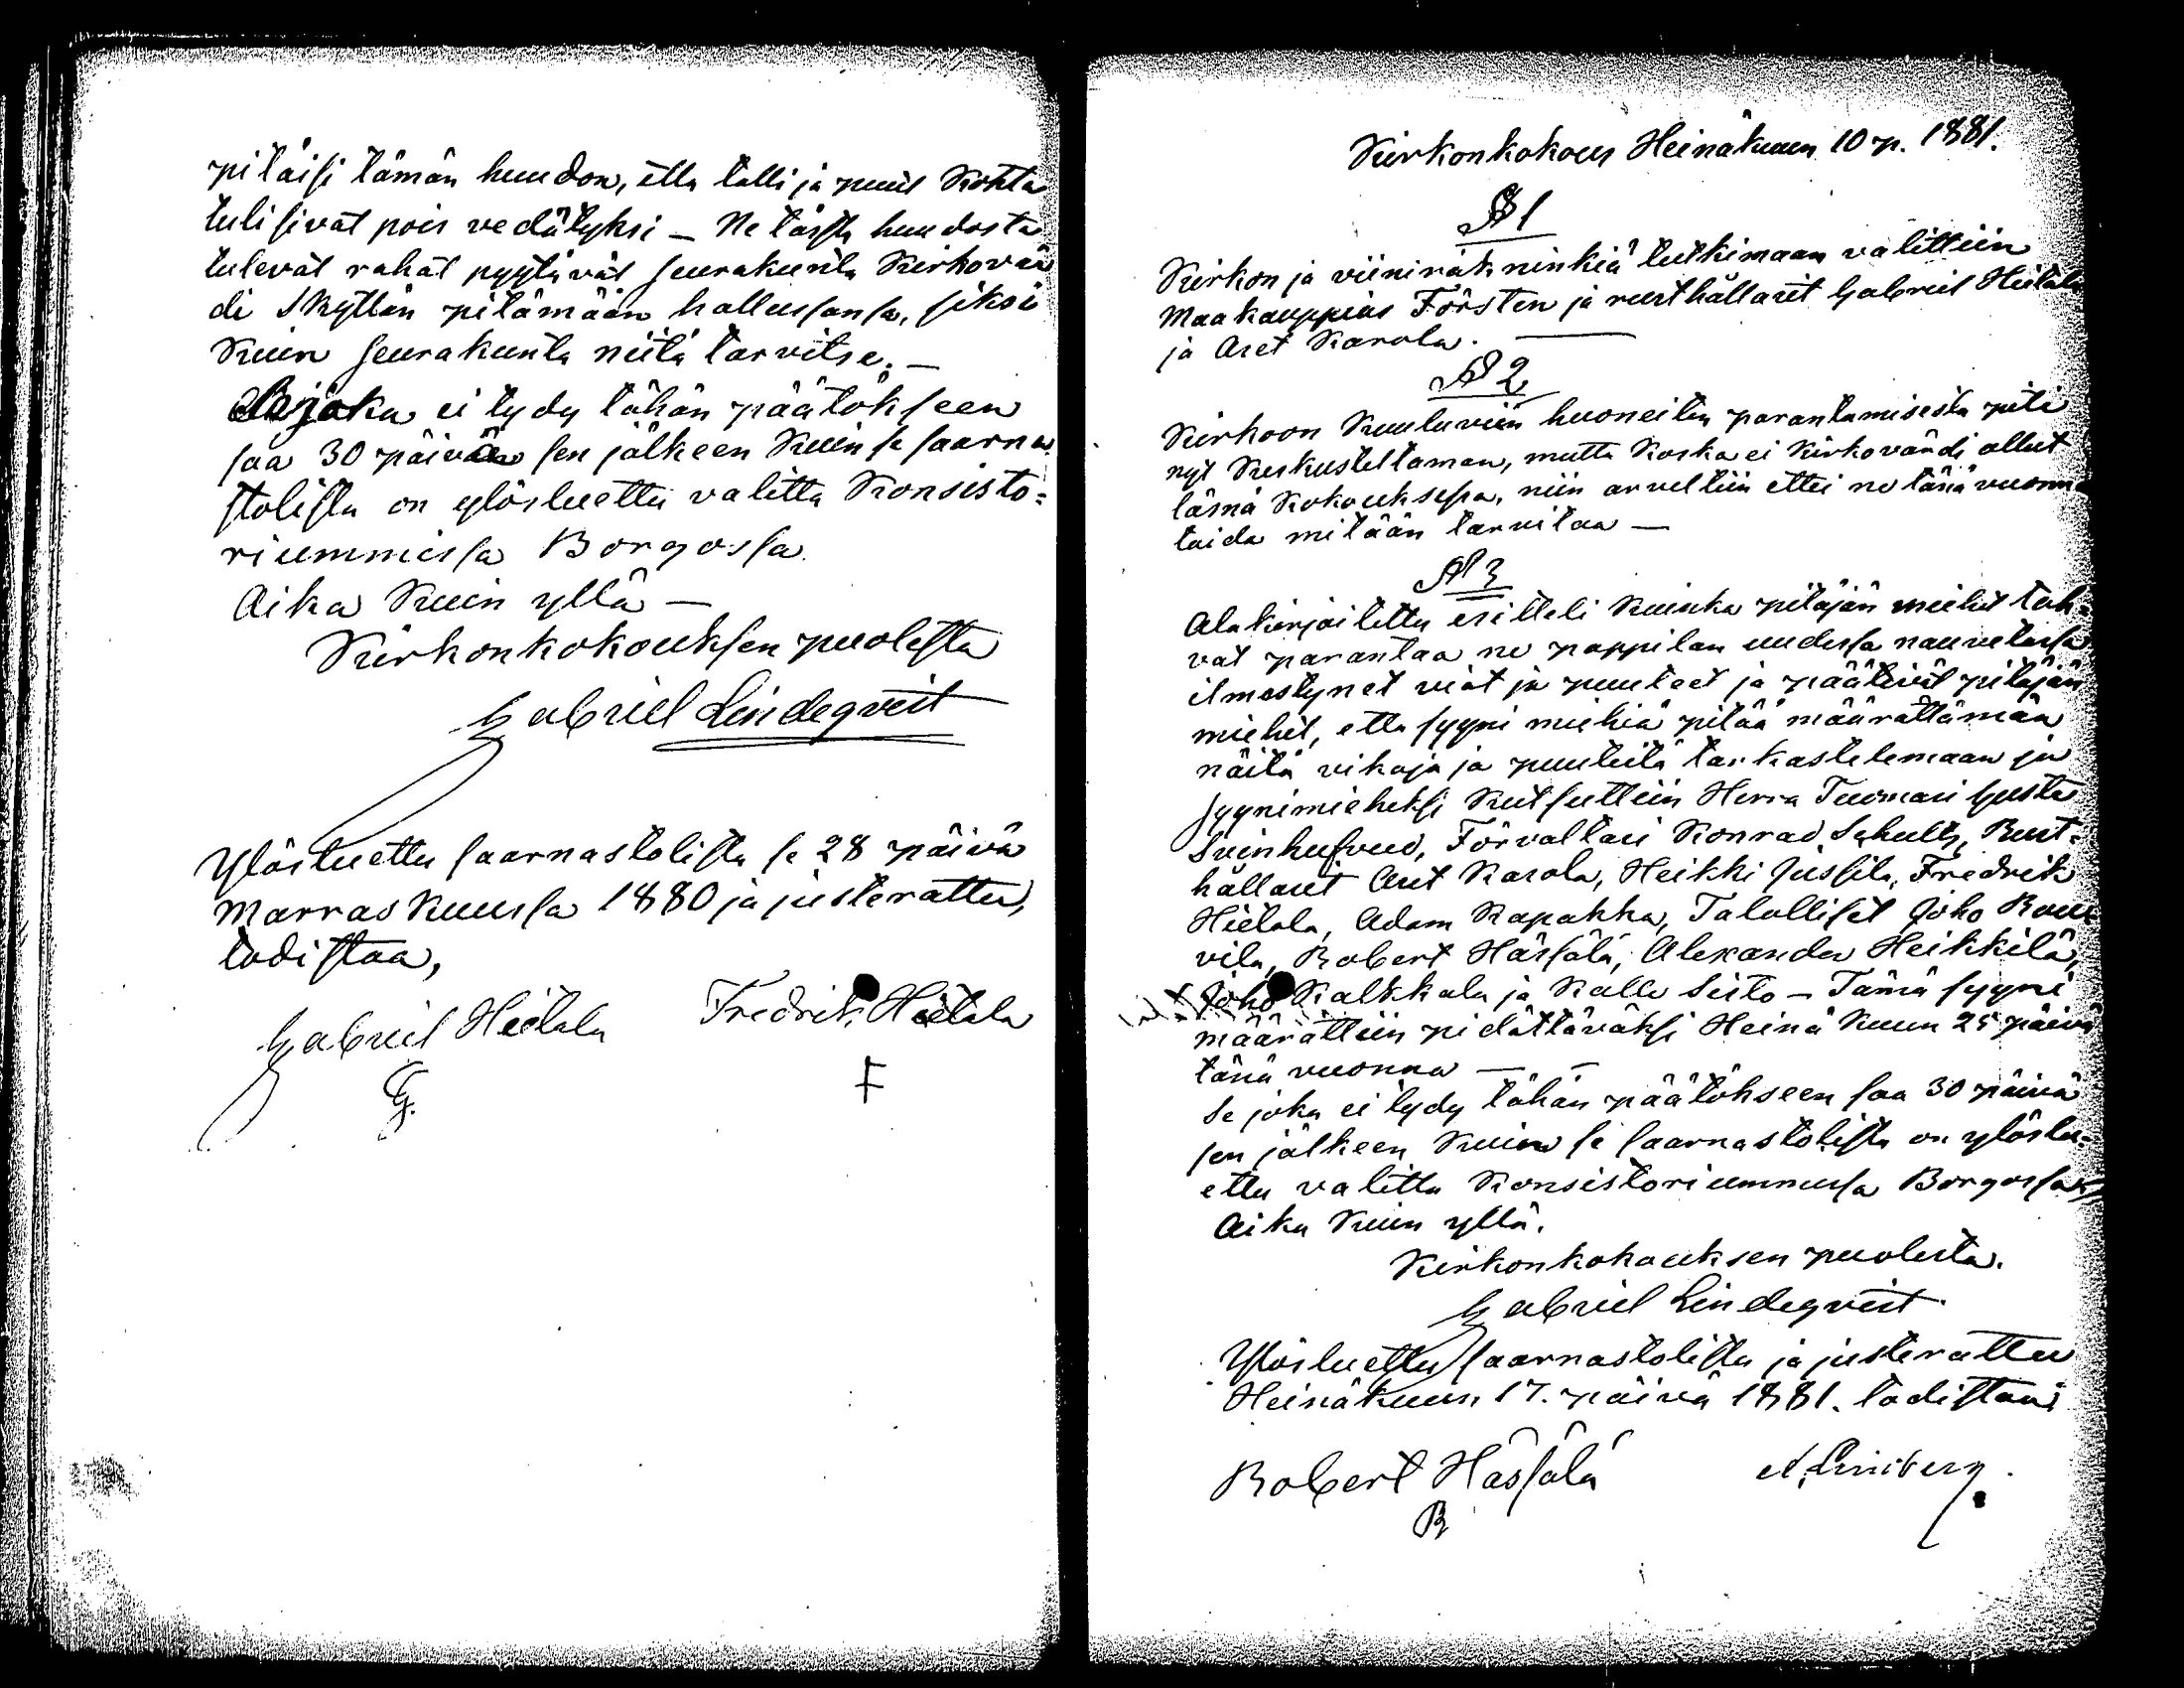 pitäisi tämän huudon, että talli ja puut Kohta
tulisivat pois vedätyksi – Ne tästä huudosta
tulevat rahat pyytävät seurakunta Kirkovär
di Skyttän pitämään hallussansa, siksi
Kuin seurakunta niitä tarvitse. –
Se joka ei tydy tähän päätökseen
saa 30 päivää sen jälkeen Kuin se saarna
stolista on ylösluettu valitta Konsisto=
riummissa Borgossa.
Aika Kuin yllä –
Kirkonkokouksen puolesta
Gabriel Lindeqvist
Ylösluettu saarnastolista se 28 päivä
Marraskuussa 1880 ja justerattu,
todistaa,
Gabriel Hietala Fredrik Hietala
G. F
Kirkonkokous Heinäkuun 10 p. 1881.
§ 1
Kirkon ja viiniräkninkiä tutkimaan valittiin
Maakauppias Försten ja rusthållarit Gabriel Hietala
ja Aret Karola.
§ 2
Kirkoon Kuuluviin huoneitten parantamisesta piti
nyt Keskusteltaman, mutta Koska ei Kirkovärdi ollut
läsnä Kokouksessa, niin arveltiin ettei ne tänä vuonna
taida mitään tarvitaa –
§ 3
Alakirjoitettu esitteli Kuinka pitäjän miehet tah=
vat parantaa ne pappilan uudessa navetassa
ilmestynet viat ja puuteet ja päätivät pitäjän
miehet, että syyni miehiä pitää määrättämän
näitä vikoja ja puuteita tarkastelemaan ja
syynimieheksi Kutsuttiin Herra Tuomari Gusta
Svinhufvud, Förvaltari Konrad Schultz, Rust=
hållarit Aret Karola, Heikki Jussila, Fredrik
Hietala, Adam Rapakka, Talolliset Joho Rau
vila, Robert Hässälä, Alexander Heikkilä,
Joho Kalkkala ja Kalle Siito – Tämä syyni
määrättiin pidättäväksi Heinä Kuun 25 päivä
tänä vuonna –
Se joka ei tydy tähän päätökseen saa 30 päivä
sen jälkeen Kuin se saarnastolista on ylöslu=
ettu valitta Konsistoriummissa Borgossa
Aika Kuin yllä.
Kirkonkokouksen puolesta.
Gabriel Lindeqvist
Ylösluettu saarnastolista ja justerattu
Heinäkuun 17. päivä 1881. todistaa
Robert Hässälä
R